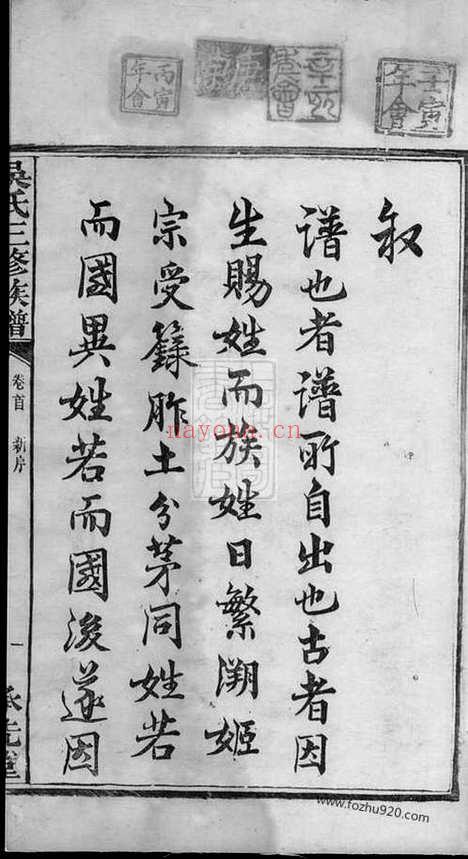 叙
譜也者譜所自出也古者因
生賜姓而族姓日繁溯姬
宗受籙胙土分茅同姓若
而國異姓若而國後遂因
吳氏三修族譜
卷首 新序
一
承先堂
壬寅年會
辛亥
丙寅年會
nayona.cn
www.fozhu920.com